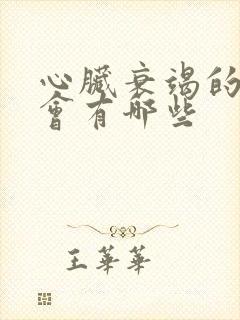 心臟衰竭的
會有哪些
王華華